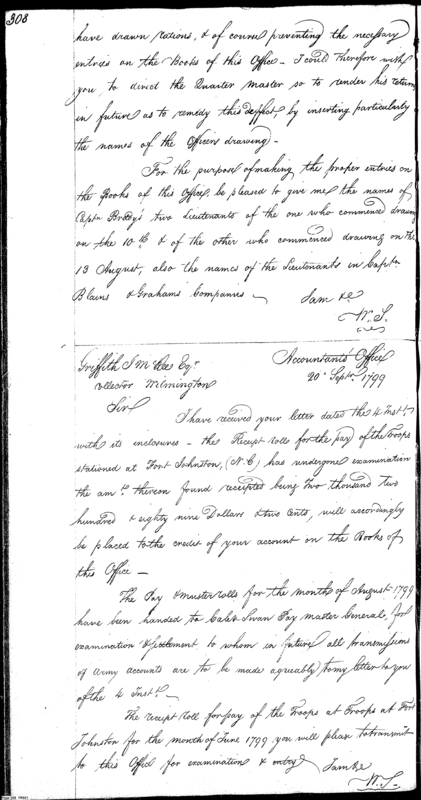 308
have drawn rations, & of course preventing the necessary
entries on the Books of this Office - I could therefore wish
you to direct the Quarter Master so to render his returns
in future as to remedy this defect, by inserting particularly
the names of the Officers drawing -
For the purpose of making the proper entries on
the Books of this Office, be pleased to give me the names of
Captn two Lieutenants of the one who commenced drawing
on the 10th & of the other who commenced drawing on the
13 August, also the names of the Lieutenants in Captn
Blains & Grahams Companies -
I am &c
W. S.
Griffith J McRee Esqr
Collector Wilmington
Accountants Office
20 Septr 1799
Sir
I have received your letter dated the 4 Inst
with its inclosures - the Receipt rolls for the pay of the Troops
stationed at Fort Johnston, (N.C) has undergone examination
the amt thereon found receipted being Two thousand two
hundred & eighty nine Dollars & two Cents, will accordingly
be placed to the credit of your account on the Books of
this Office -
The Pay & muster rolls for the months of August 1799
have been handed to Caleb Swan Pay master General, for
examination & settlement to whom in future all transmissions
of Army accounts are to be made agreeably to my letter to you
of the 4 Inst -
The receipt roll for pay of the Troops at Troops at Fort
Johnston for the month of June 1799 you will please to transmit
to this Office for examination & entry
I am &c
W. S.